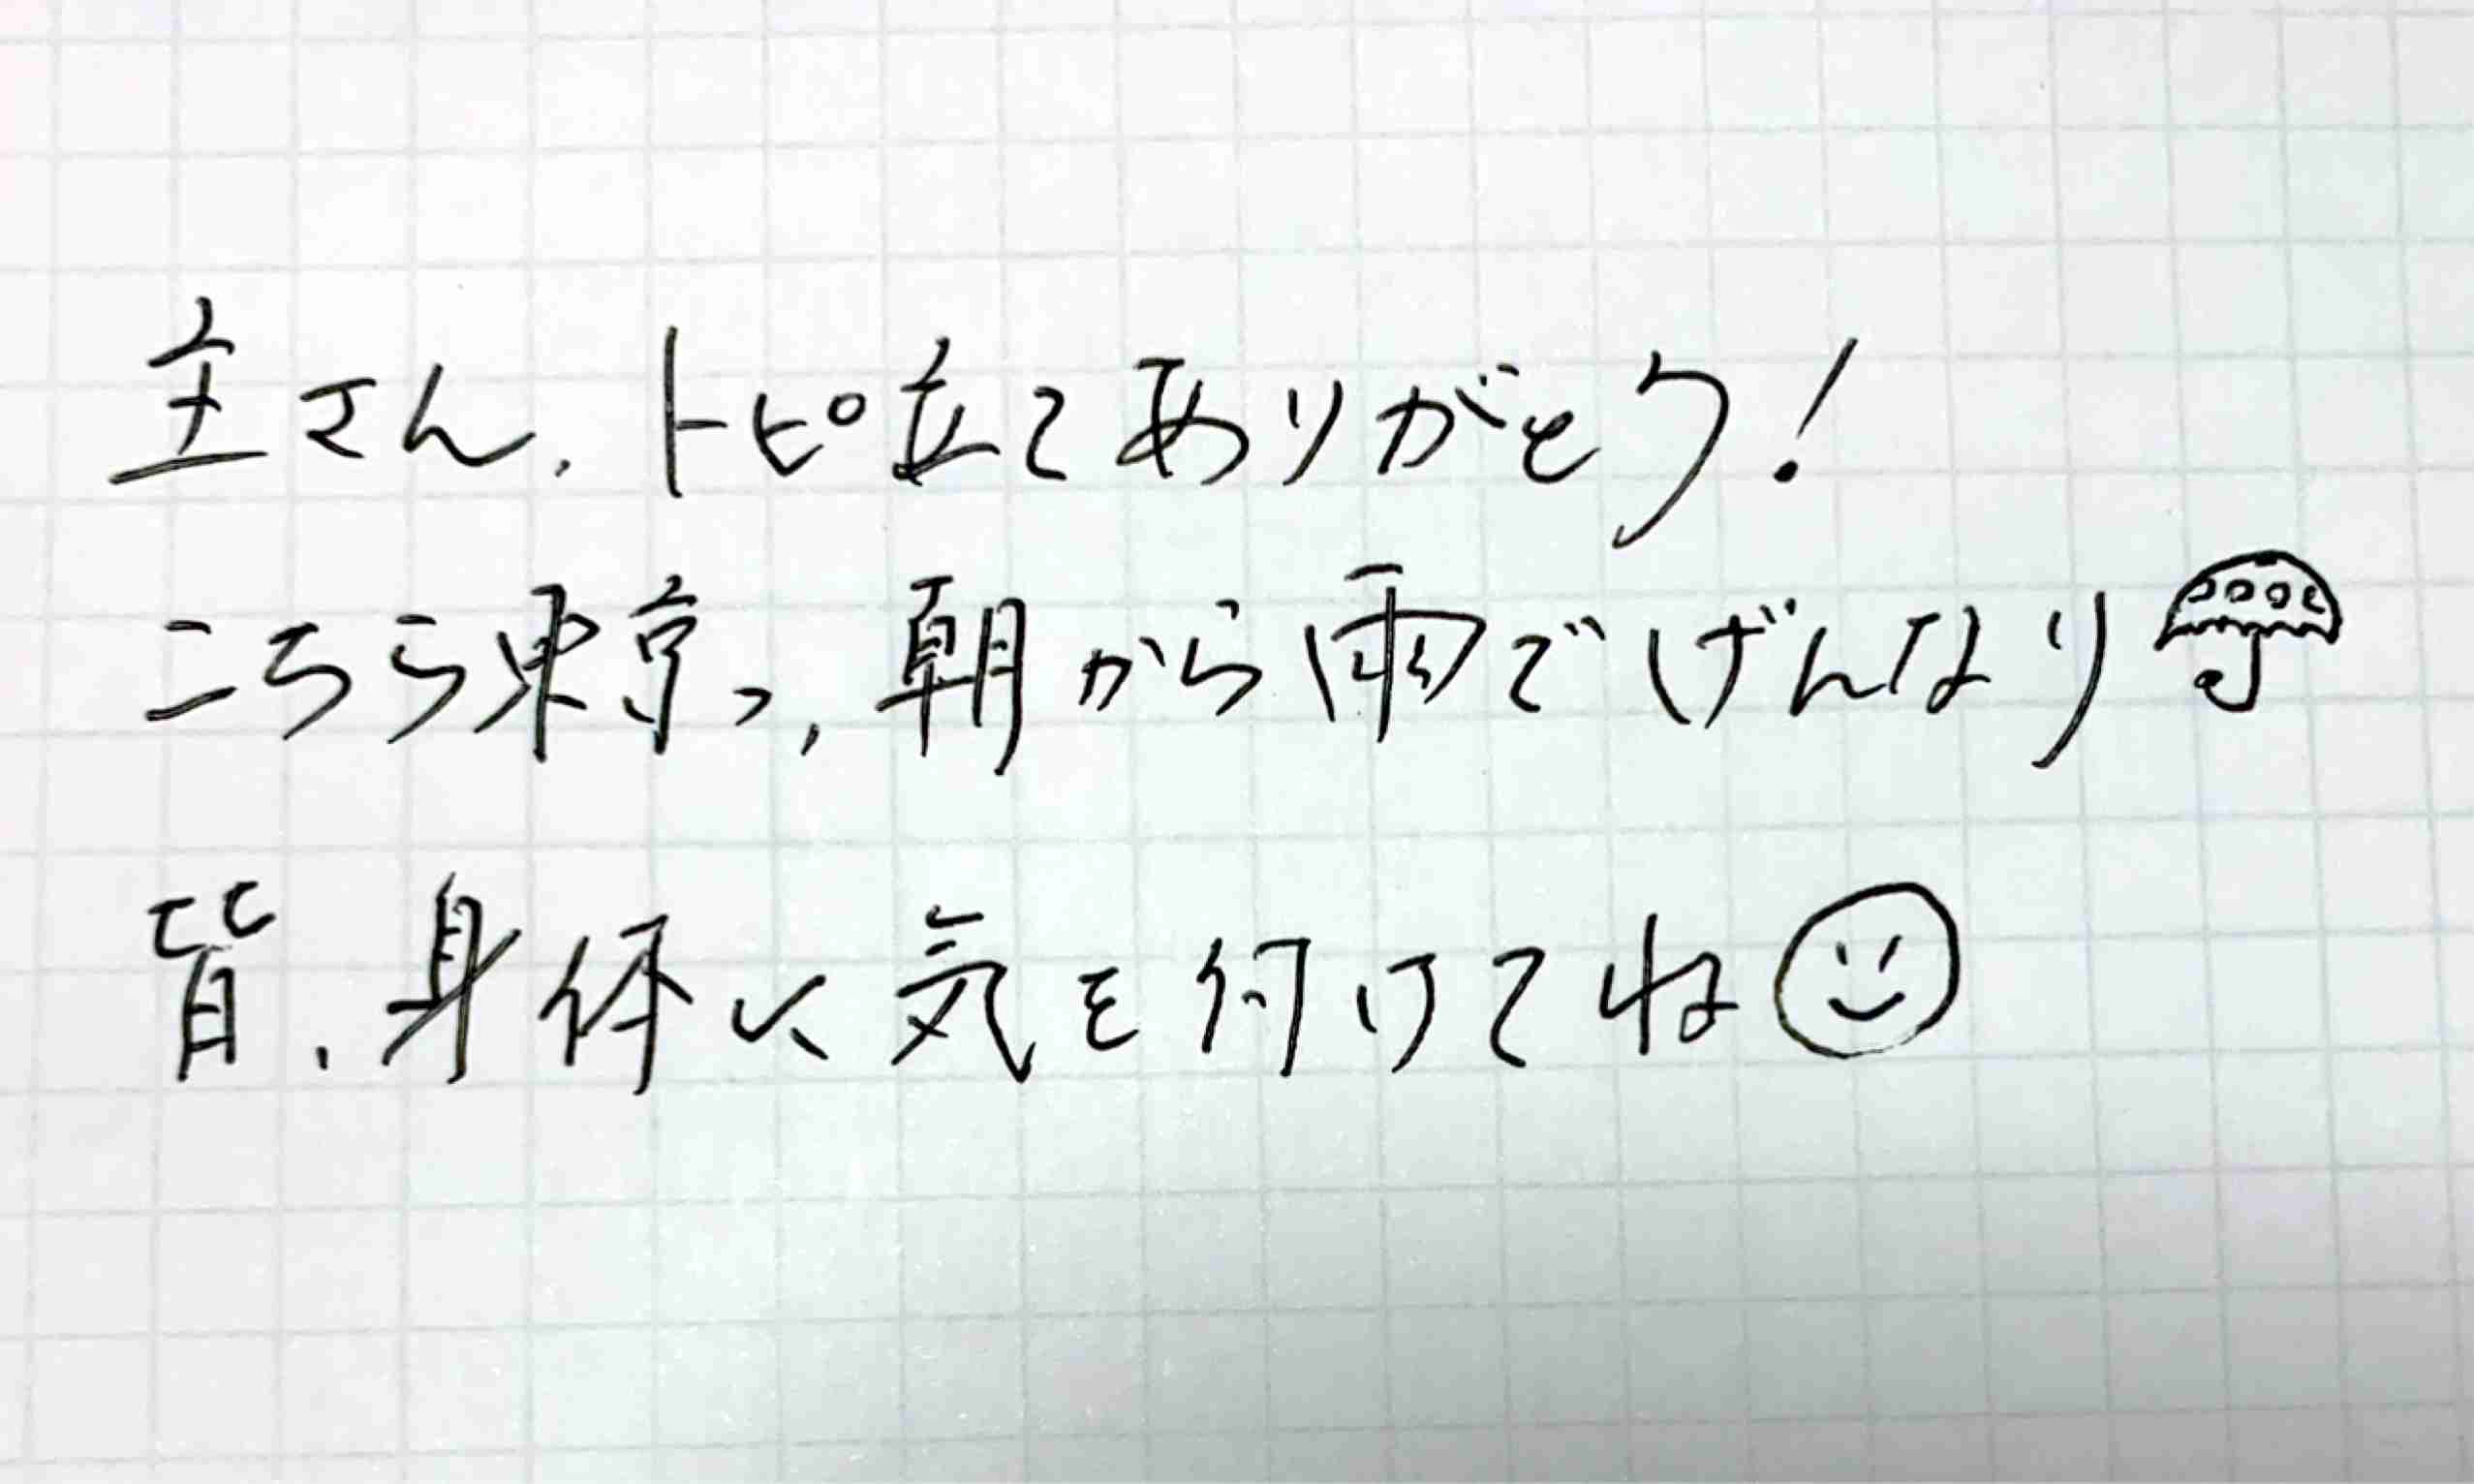 主さん、トピ立てありがとう!
こちら東京、朝から雨でげんなり
皆、身体に気を付けてね